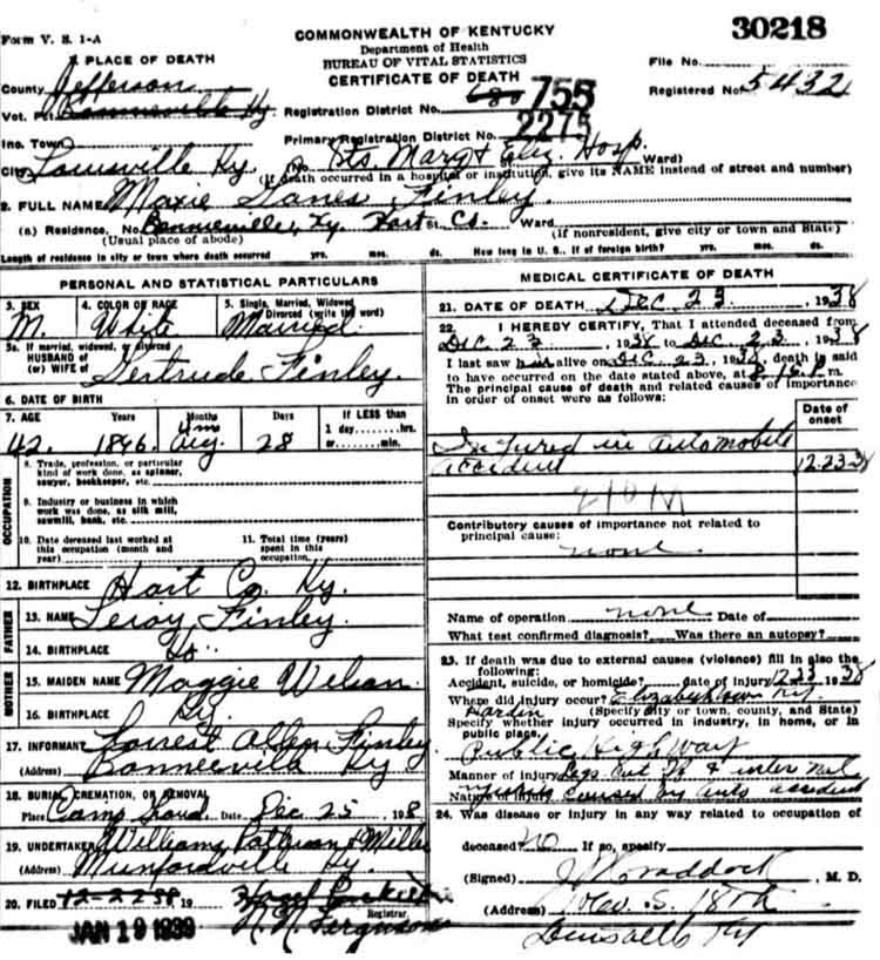 Form V. S. 1-A
COMMONWEALTH OF KENTUCKY
Department of Health
BUREAU OF VITAL STATISTICS
CERTIFICATE OF DEATH
30218
File No.
Registered No. 5432
1 PLACE OF DEATH
County Jefferson
Vot. Pct. Bonnieville Ky.
Registration District No. 755
Inc. Town
Primary Registration District No. 2275
City Louisville Ky. (No. Sts. Mary & Eliz. Hosp. Ward)
(If death occurred in a hospital or institution, give its NAME instead of street and number)
2. FULL NAME Maxie Finley.
(a) Residence. No. Bonnieville, Ky. Hart St. Co. Ward
(Usual place of abode) (If nonresident, give city or town and State)
Length of residence in city or town where death occurred yrs. mos. ds. How long in U. S., if of foreign birth? yrs. mos. ds.
PERSONAL AND STATISTICAL PARTICULARS
3. SEX 4. COLOR OR RACE 5. Single, Married, Widowed
Divorced (write the word)
M. White Married.
5a. If married, widowed, or divorced
HUSBAND of
(or) WIFE of Gertrude Finley.
6. DATE OF BIRTH
7. AGE Years Months Days If LESS than
1 day........hrs.
or........min.
42. 1896. Aug 28
OCCUPATION
8. Trade, profession, or particular
kind of work done, as spinner,
sawyer, bookkeeper, etc.
9. Industry or business in which
work was done, as silk mill,
sawmill, bank, etc.
10. Date deceased last worked at
this occupation (month and
year)
11. Total time (years)
spent in this
occupation
12. BIRTHPLACE Hart Co. Ky.
FATHER
13. NAME Leroy Finley.
14. BIRTHPLACE
MOTHER
15. MAIDEN NAME Maggie Wilson
16. BIRTHPLACE Ky.
17. INFORMANT Forrest Allen Finley
(Address) Bonnieville Ky
18. BURIAL, CREMATION, OR REMOVAL
Place Camp Ground. Date Dec. 25 198
19. UNDERTAKER Williams & Miller
(Address) Munfordville Ky.
20. FILED 19
Registrar.
JAN 19 1939 N. N. Ferguson
MEDICAL CERTIFICATE OF DEATH
21. DATE OF DEATH Dec 23, 1938
22. I HEREBY CERTIFY, That I attended deceased from
Dec. 23, 1938 to Dec. 23, 1938
I last saw him alive on Dec. 23, 1938, death is said
to have occurred on the date stated above, at m.
The principal cause of death and related causes of importance
in order of onset were as follows:
Date of
onset
Injured in automobile
accident 12-23-38
210 M
Contributory causes of importance not related to
principal cause:
none
Name of operation none Date of
What test confirmed diagnosis? Was there an autopsy?
23. If death was due to external causes (violence) fill in also the
following:
Accident, suicide, or homicide? date of injury 1938
Where did injury occur? Elizabethtown Ky.
Hardin (Specify city or town, county, and State)
Specify whether injury occurred in industry, in home, or in
public place.
Public Highway
Manner of injury Legs &
Nature of injury caused by auto accident
24. Was disease or injury in any way related to occupation of
deceased? No If so, specify
(Signed) Craddock, M. D.
(Address) S. 18th
Louisville Ky